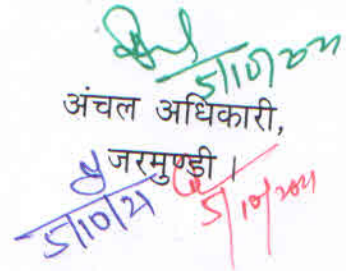 5/10/2021
अंचल अधिकारी,
जरमुण्डी ।
5/10/21
5/10/2021